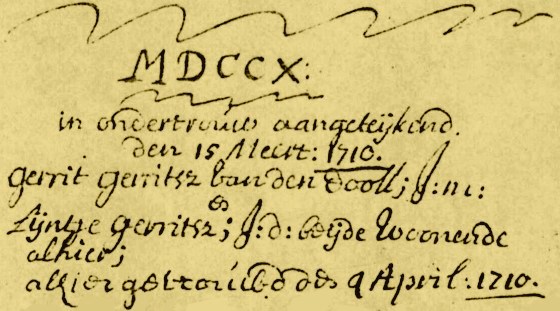 MDCCX:
in ondertrouw aangeteijkend.
den 15 Meert: 1710.
Gerrit Gerritsz van den Dooll; J:m:
en
Lijntje Gerritsz; J:d: beijde Woonende
alhier;
alhier getrouwd den 9 April: 1710.